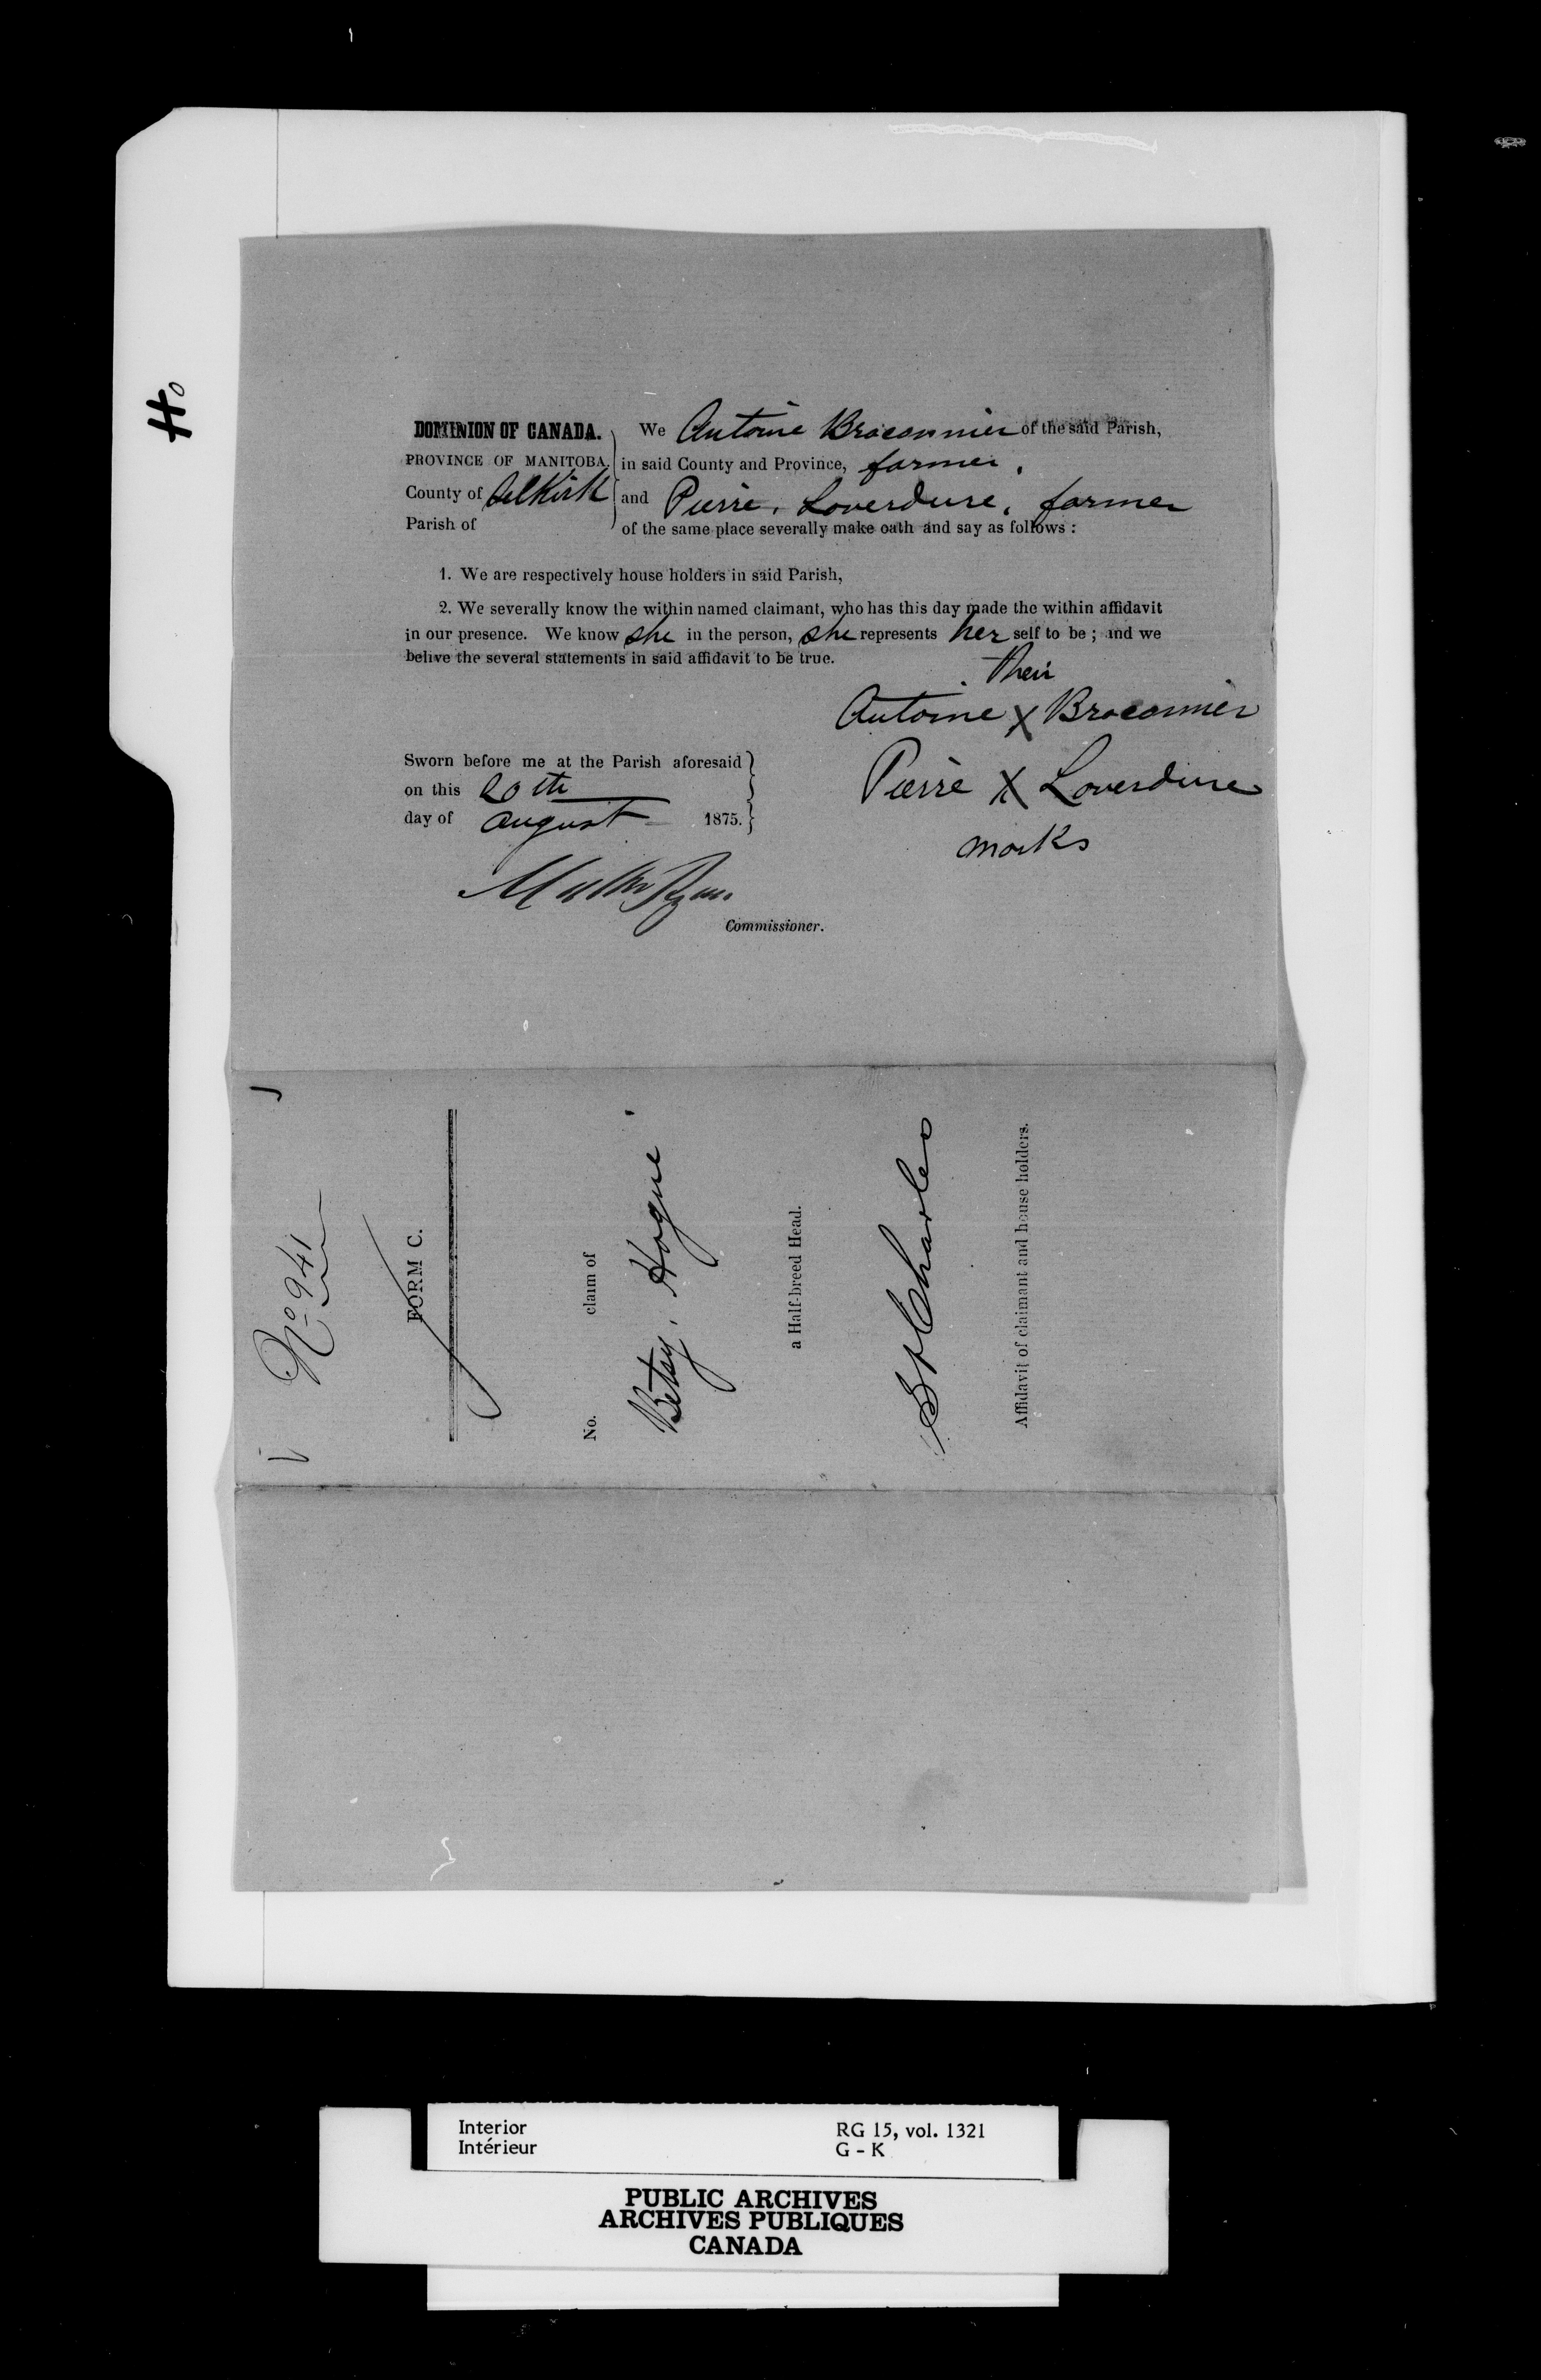 Ho
DOMINION OF CANADA.
PROVINCE OF MANITOBA.
County of Selkirk
Parish of
We Antoine Braconnier of the said Parish,
in said County and Province, farmer,
and Pierre, Loverdure, farmer
of the same place severally make oath and say as follows :
1. We are respectively house holders in said Parish,
2. We severally know the within named claimant, who has this day made the within affidavit
in our presence. We know she in the person, she represents her self to be ; and we
belive the several statements in said affidavit to be true.
their
Antoine X Braconnier
Pierre X Loverdure
marks
Sworn before me at the Parish aforesaid
on this 20th
day of august 1875.
Ryan
Commissioner.
No 941
FORM C.
No. claim of
Betsy, Hogue
a Half-breed Head.
St Charles
Affidavit of claimant and house holders.
Interior RG 15, vol. 1321
Intérieur G - K
PUBLIC ARCHIVES
ARCHIVES PUBLIQUES
CANADA